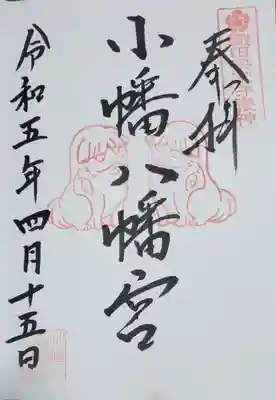 奉拝
小幡八幡宮
令和五年四月十五日